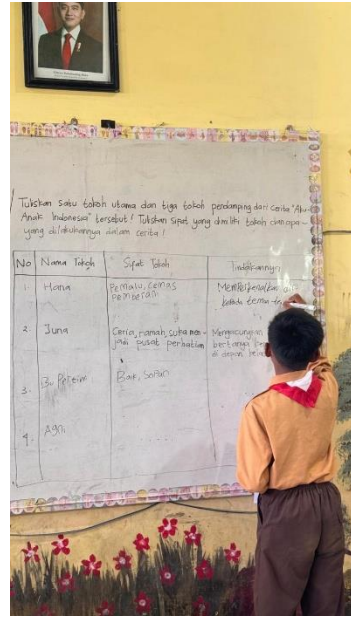 Tuliskan satu tokoh utama dan tiga tokoh perdamping dari cerita "Aku
Anak Indonesia" tersebut! Tuliskan sifat yang dimiliki tokoh dan apa
yang dilakukannya dalam cerita!
No Nama Tokoh Sifat Tokoh Tindakannya
1. Hana Pemalu, cemas
pemberani
Memperkenalkan
kepada
2. Juna Ceria, ramah, suka men-
jadi pusat perhatian
Mengacungkan
bertanya
di depan
3. Baik, Sopan
4. Agni